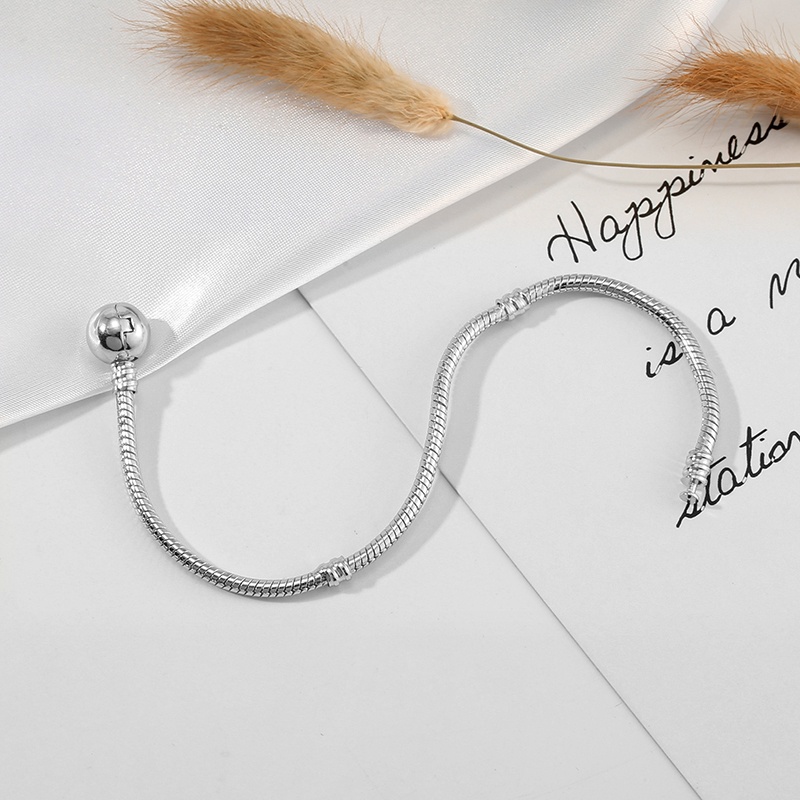 Happiness
is a
station